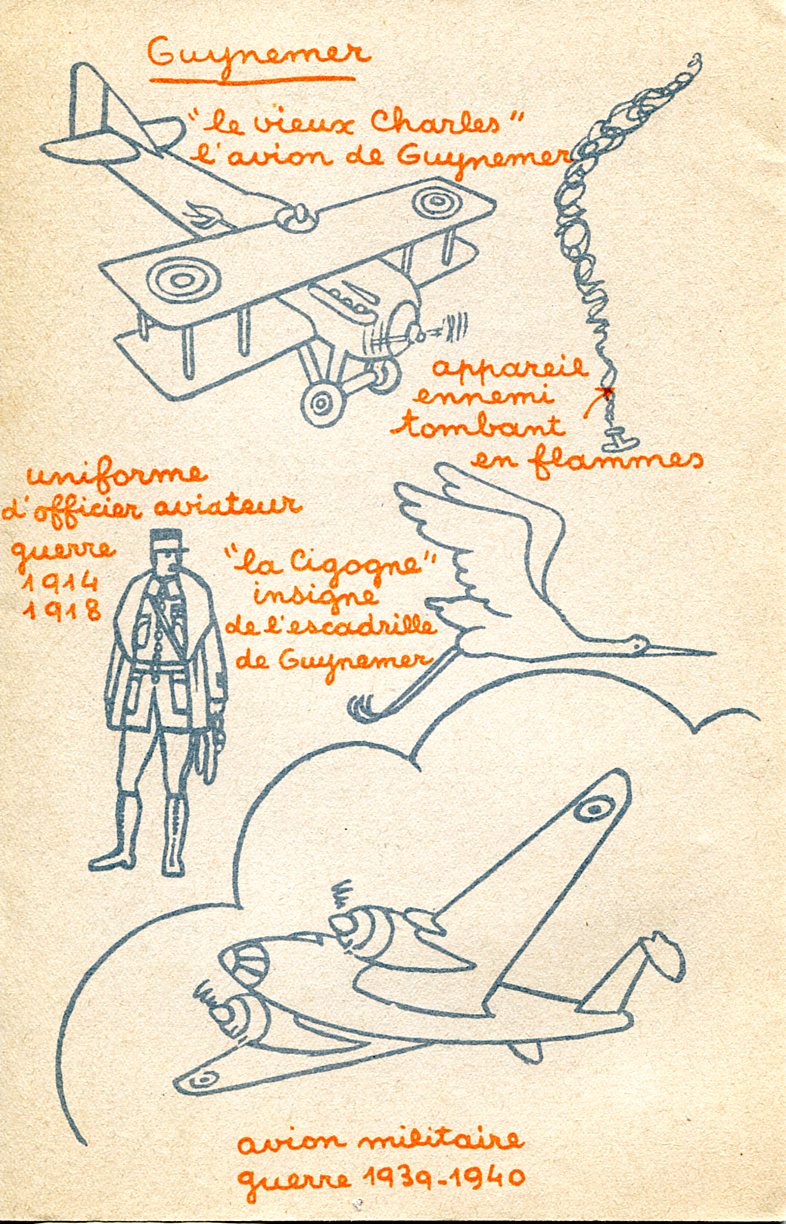 Guynemer
"le vieux Charles"
l'avion de Guynemer
appareil
ennemi
tombant
en flammes
uniforme
d'officier aviateur
guerre
1914
1918
"la Cigogne"
insigne
de l'escadrille
de Guynemer
avion militaire
guerre 1939-1940